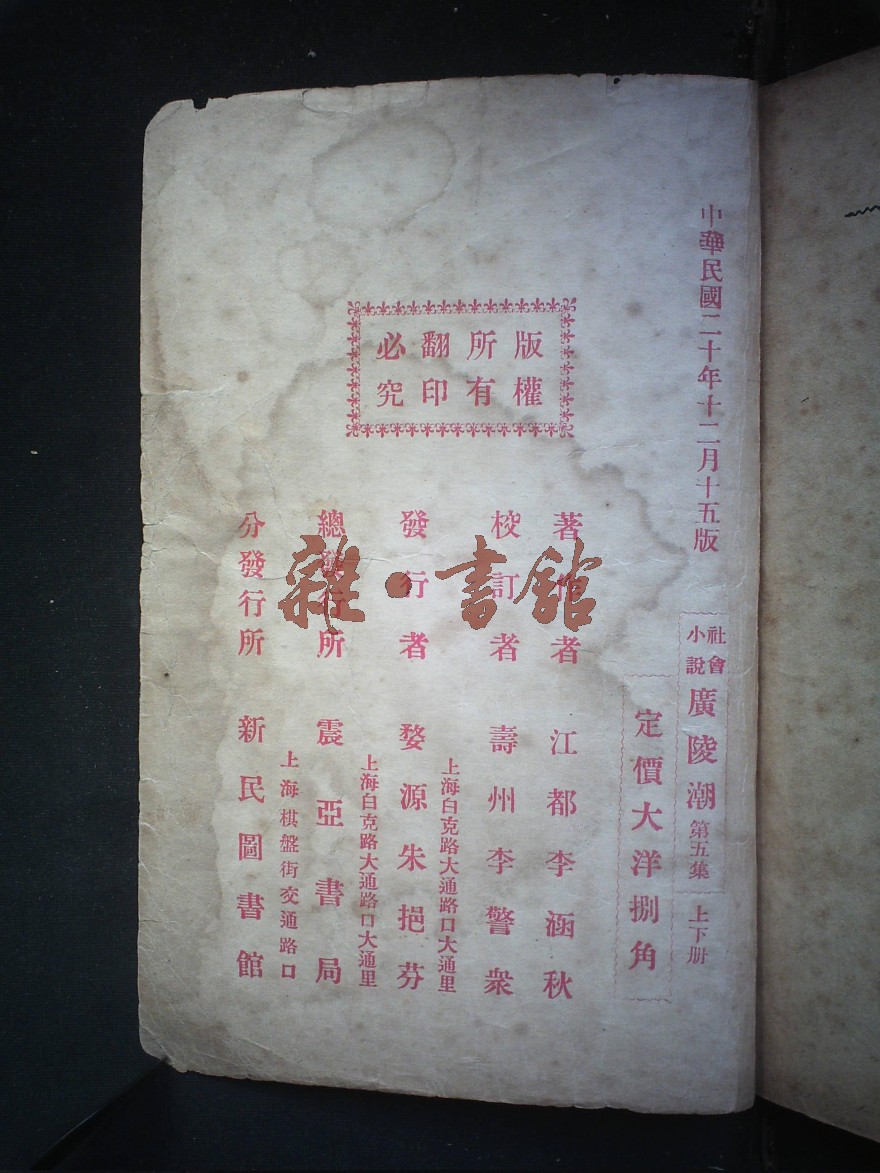 中華民國二十年十二月十五版
社會小說 廣陵潮 第五集 上下册
定價大洋捌角
版權
所有
翻印
必究
著作者 江都李涵秋
校訂者 壽州李警衆
上海白克路大通路口大通里
發行者 婺源朱挹芬
上海白克路大通路口大通里
總發行所 震亞書局
上海棋盤街交通路口
分發行所 新民圖書館
雜·書館